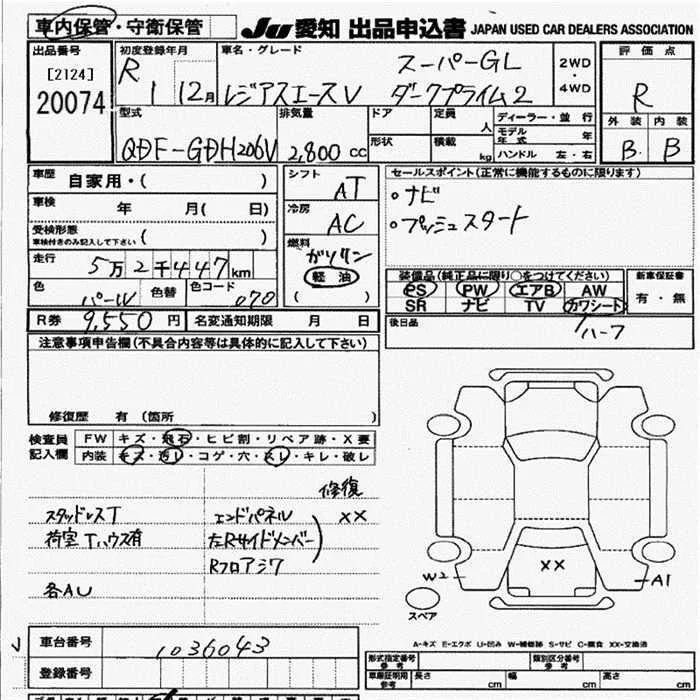 車内保管・守衛保管 JU 愛知 出品申込書 JAPAN USED CAR DEALERS ASSOCIATION
出品番号 初度登録年月 車名・グレード スーパーGL 2WD・4WD 評価点
[2124]
20074 R 1 12月 レジアスエースV ダークプライム2 R
型式 排気量 ドア 定員 人 ディーラー・並行 外装 内装
モデル年式 年
QDF-GDH206V 2,800 cc 形状 積載 kg ハンドル 左・右 B B
車歴 自家用・( ) シフト AT セールスポイント(正常に機能するものに限ります)
車検 年 月( 日) 冷房 AC ・ナビ
受検形態 ( ) ・プッシュスタート
車検付きのみ記入して下さい
燃料 ガソリン
走行 5万2千447km 軽油
( )
装備品(純正品に限り○をつけてください) 新車保証書
色 パールW 色替 色コード 070 PS PW エアB AW 有・無
SR ナビ TV カワシート
R券 9,550円 名変通知期限 月 日 後日品 ハーフ
注意事項申告欄(不具合内容等は具体的に記入して下さい)
修復歴 有(箇所
検査員記入欄 FW キズ・飛石・ヒビ割・リペア跡・X要
内装 キズ・汚レ・コゲ・穴・スレ・キレ・破レ
修復
スタッドレスT エンドパネル XX
荷室Tハウス有 左Rサイドメンバー
Rフロアシワ
各AU
XX
W2 A1
スペア
A-キズ E-エクボ U-凹み W-補修跡 S-サビ C-腐食 XX-交換済
車台番号 1036043
形式指定番号 参考 類別区分番号 参考
登録番号 車庫証明用 参考 長さ cm 幅 cm 高さ cm